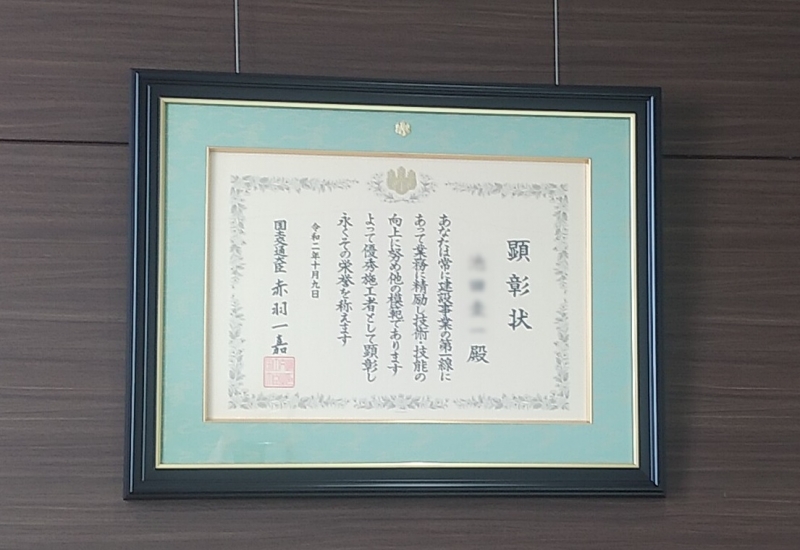 顕彰状
殿
あなたは常に建設事業の第一線に
あって業務に精励し技術・技能の
向上に努め他の模範であります
よって優秀施工者として顕彰し
永くその栄誉を称えます
令和二年十月九日
国土交通大臣 赤羽一嘉